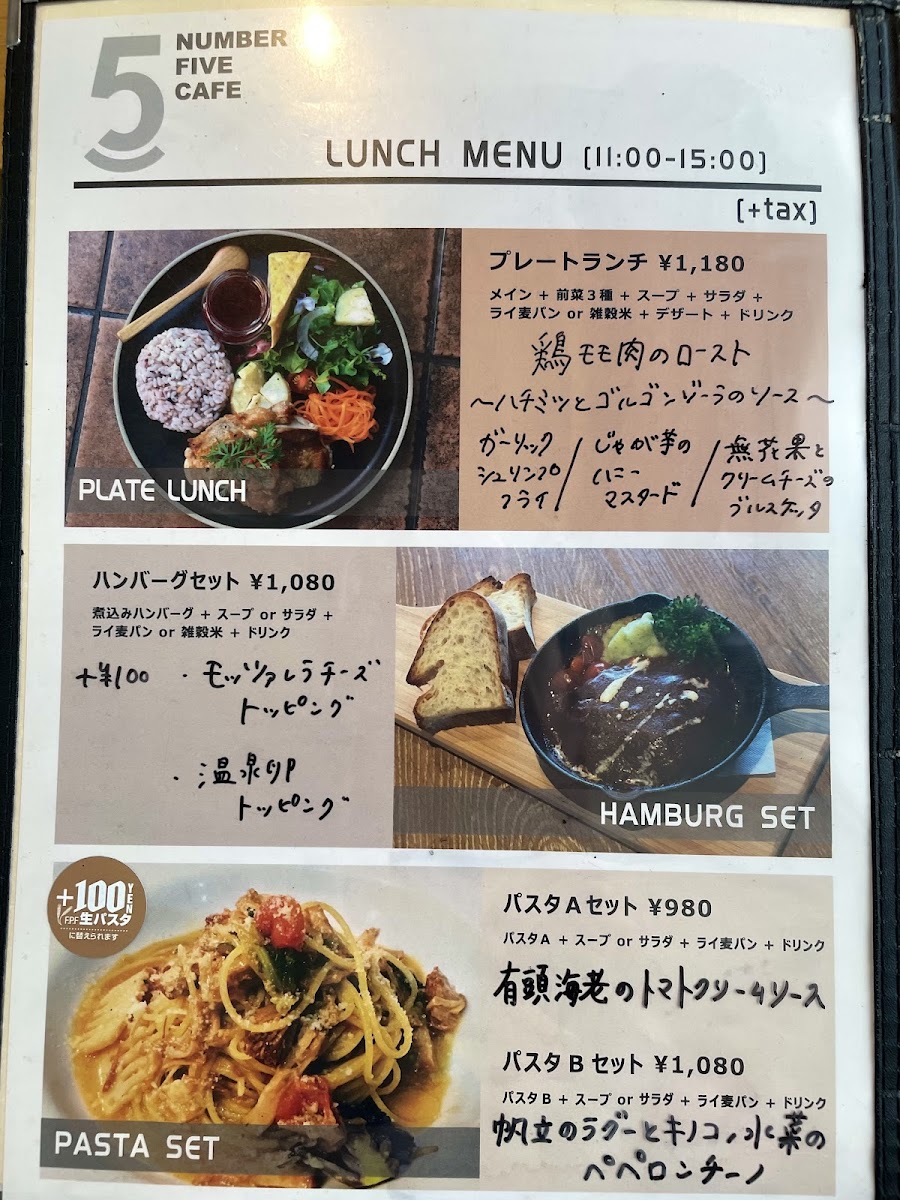 5
NUMBER
FIVE
CAFE
LUNCH MENU [11:00-15:00]
[+tax]
プレートランチ ¥1,180
メイン + 前菜3種 + スープ + サラダ +
ライ麦パン or 雑穀米 + デザート + ドリンク
鶏モモ肉のロースト
～ハチミツとゴルゴンゾーラのソース～
ガーリック
シュリンプ
フライ
/
じゃが芋の
ハニー
マスタード
/
無花果と
クリームチーズの
ブルスケッタ
PLATE LUNCH
ハンバーグセット ¥1,080
煮込みハンバーグ + スープ or サラダ +
ライ麦パン or 雑穀米 + ドリンク
+¥100 ・モッツァレラチーズ
トッピング
・温泉卵
トッピング
HAMBURG SET
+100YEN
F.P.F 生パスタ
に替えられます
パスタAセット ¥980
パスタA + スープ or サラダ + ライ麦パン + ドリンク
有頭海老のトマトクリームソース
パスタBセット ¥1,080
パスタB + スープ or サラダ + ライ麦パン + ドリンク
帆立のラグーとキノコ、水菜の
ペペロンチーノ
PASTA SET